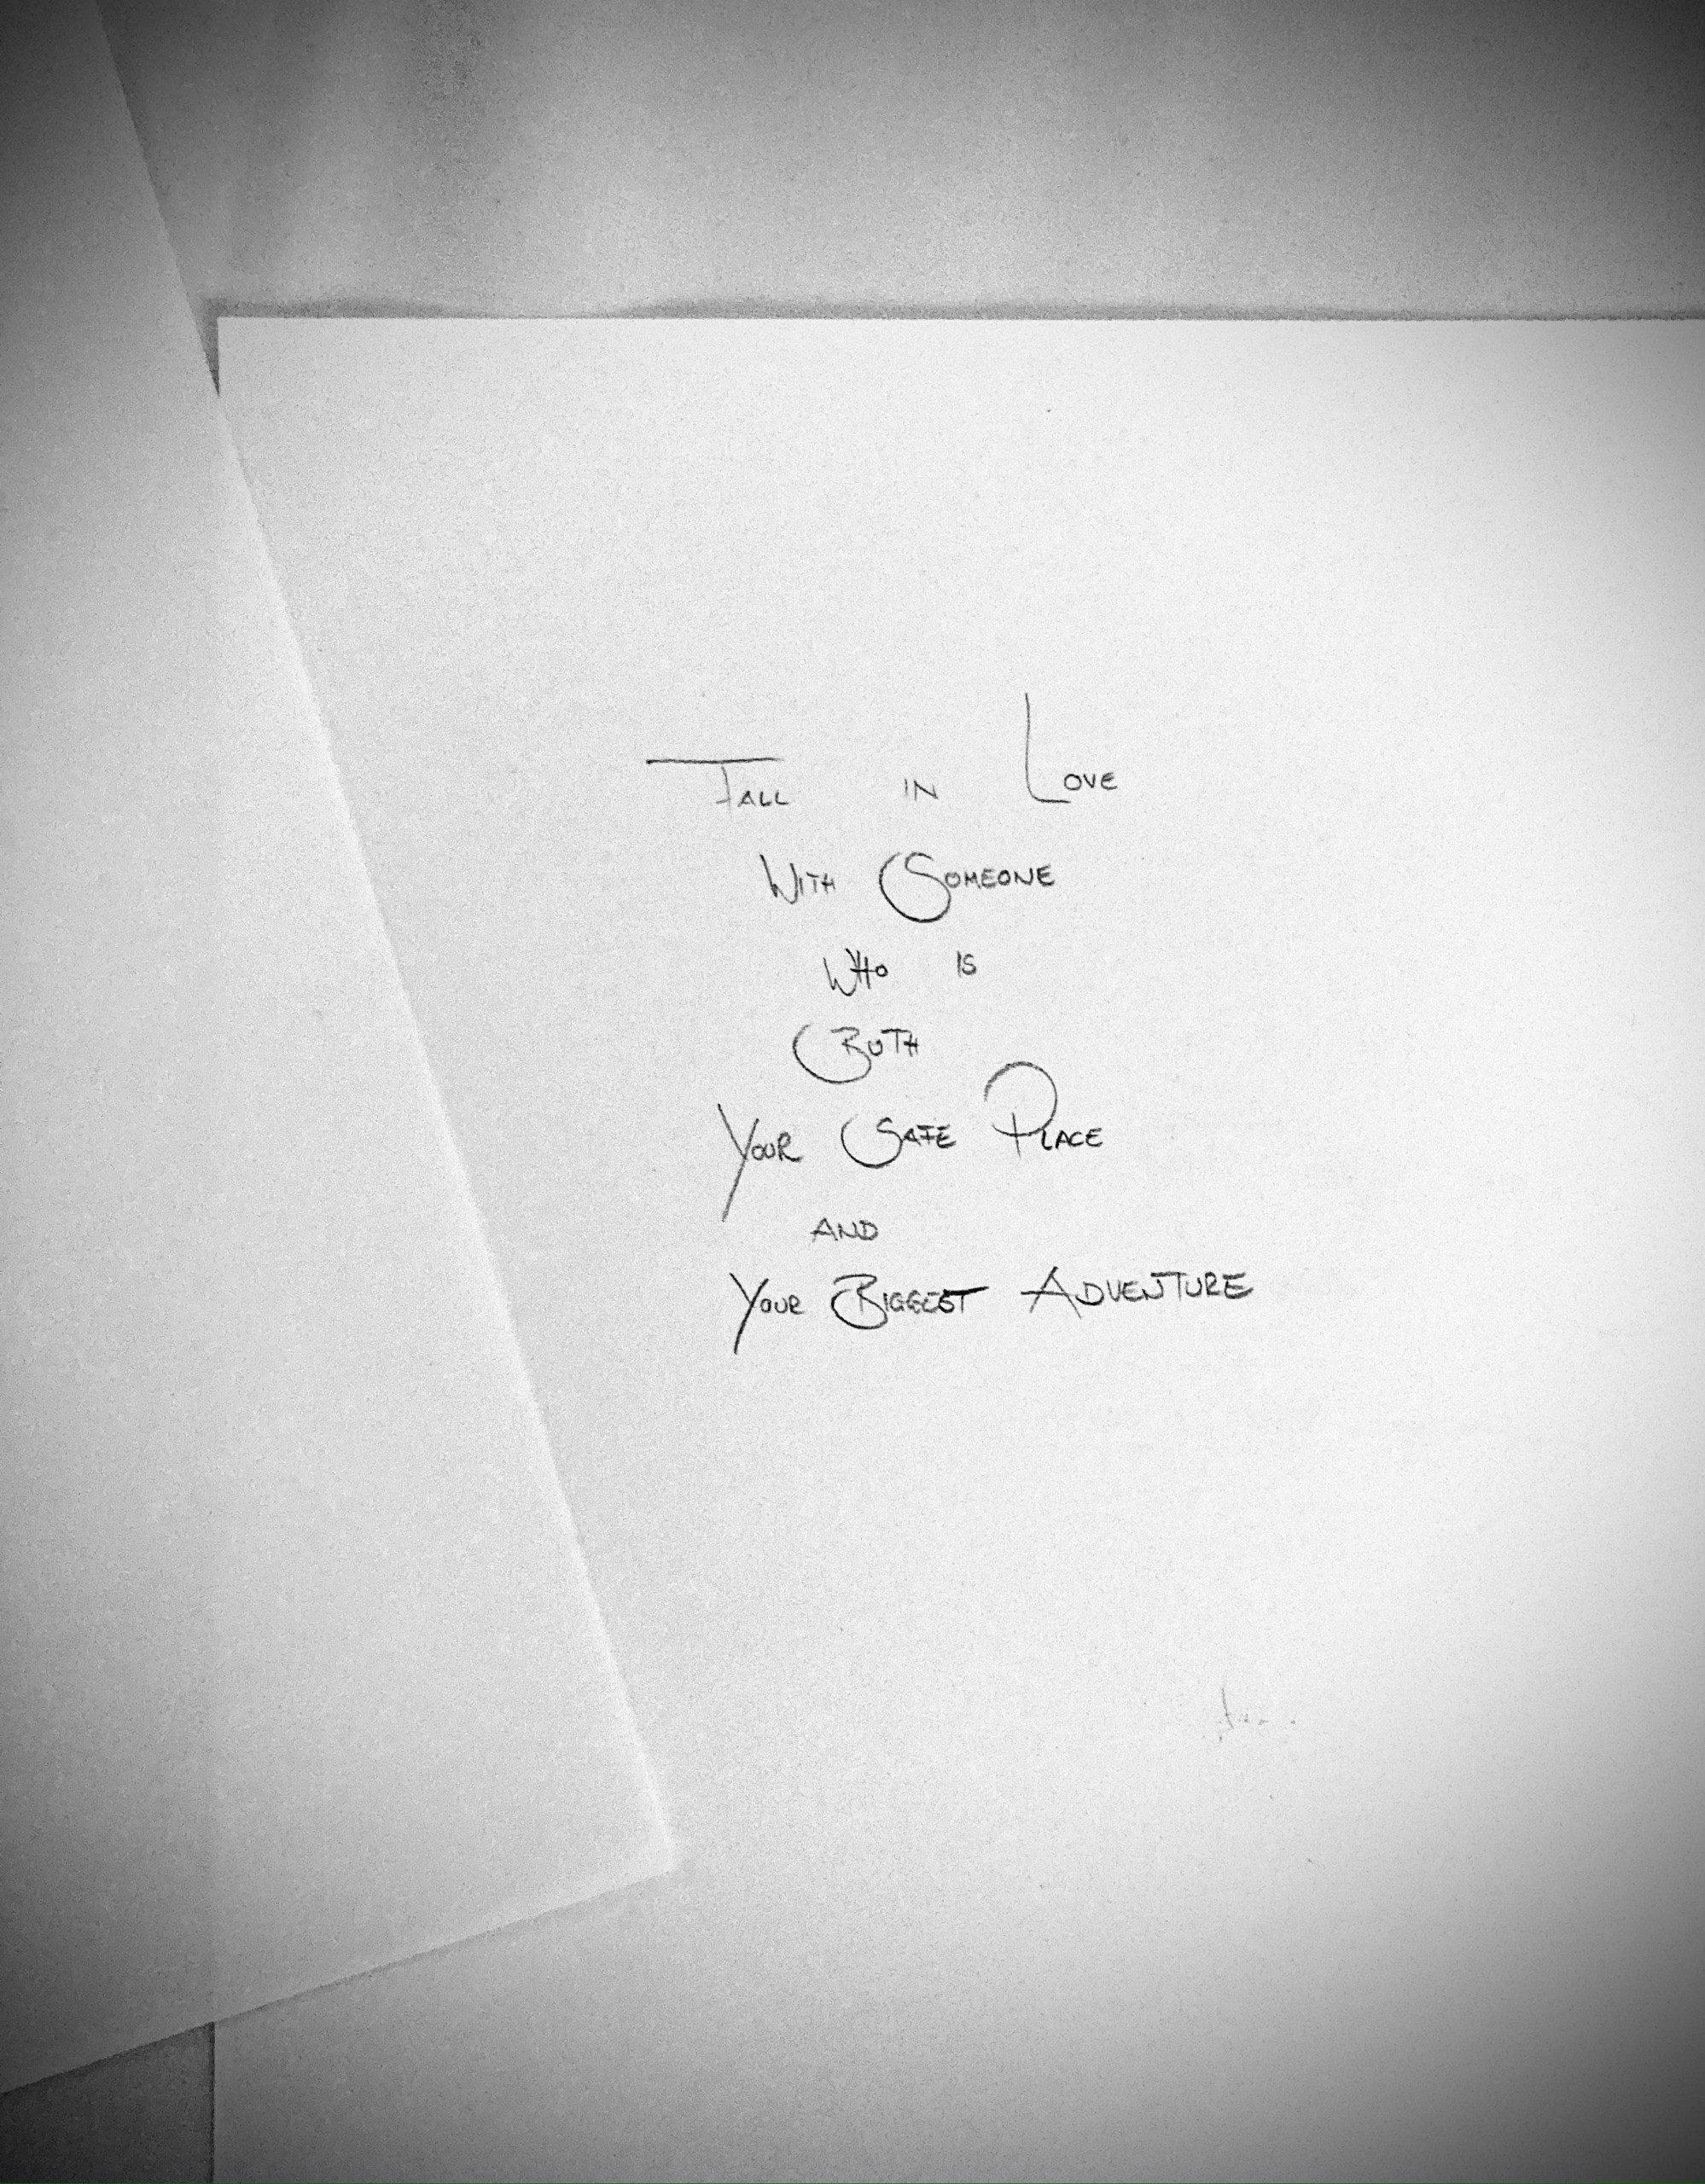 Fall in Love
With Someone
Who is
Both
Your Safe Place
and
Your Biggest Adventure